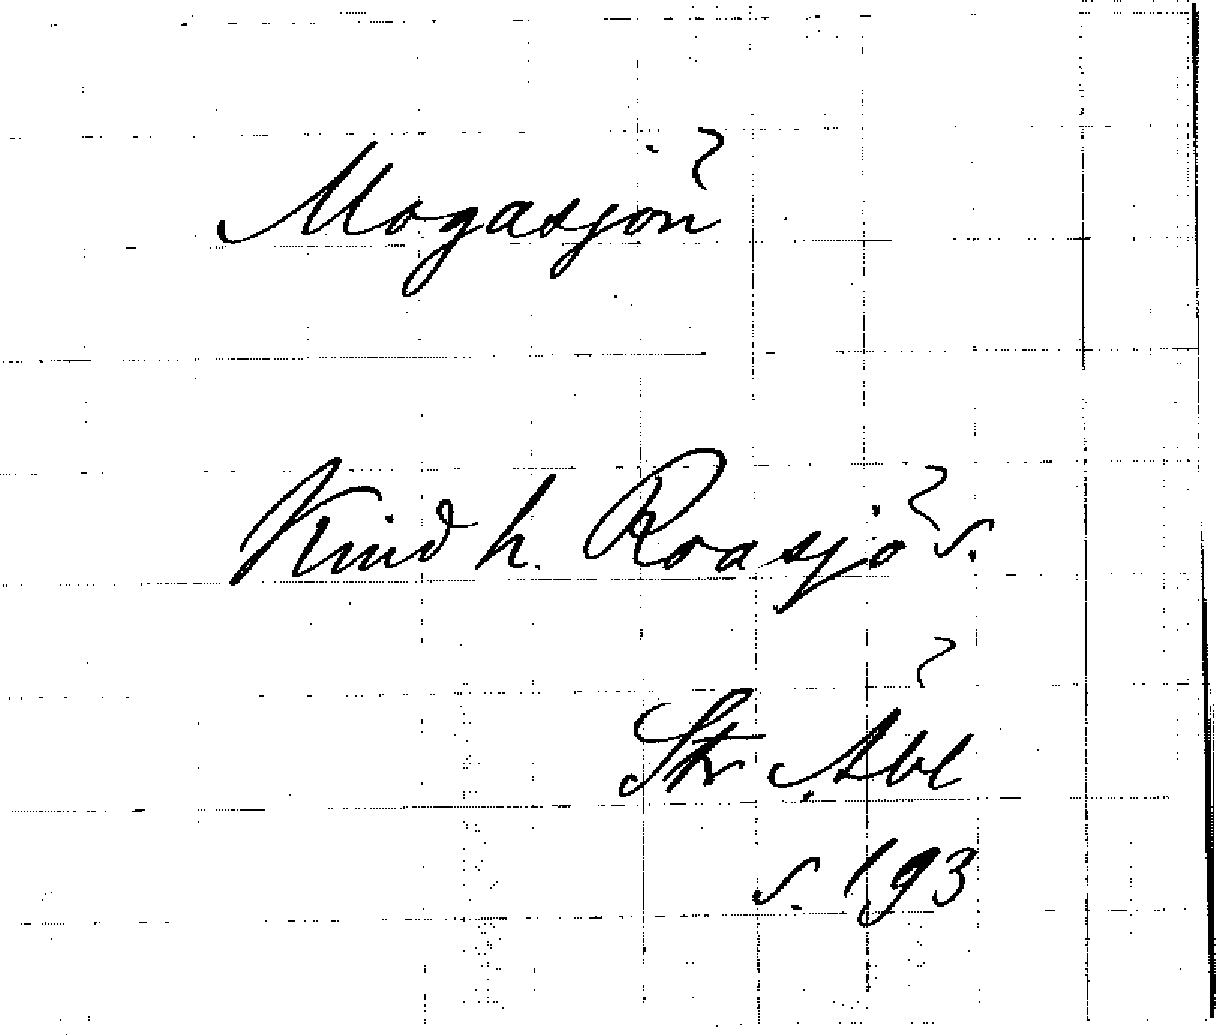 Mogasjön
Kind h. Roasjö s.
Str Abl
s. 193